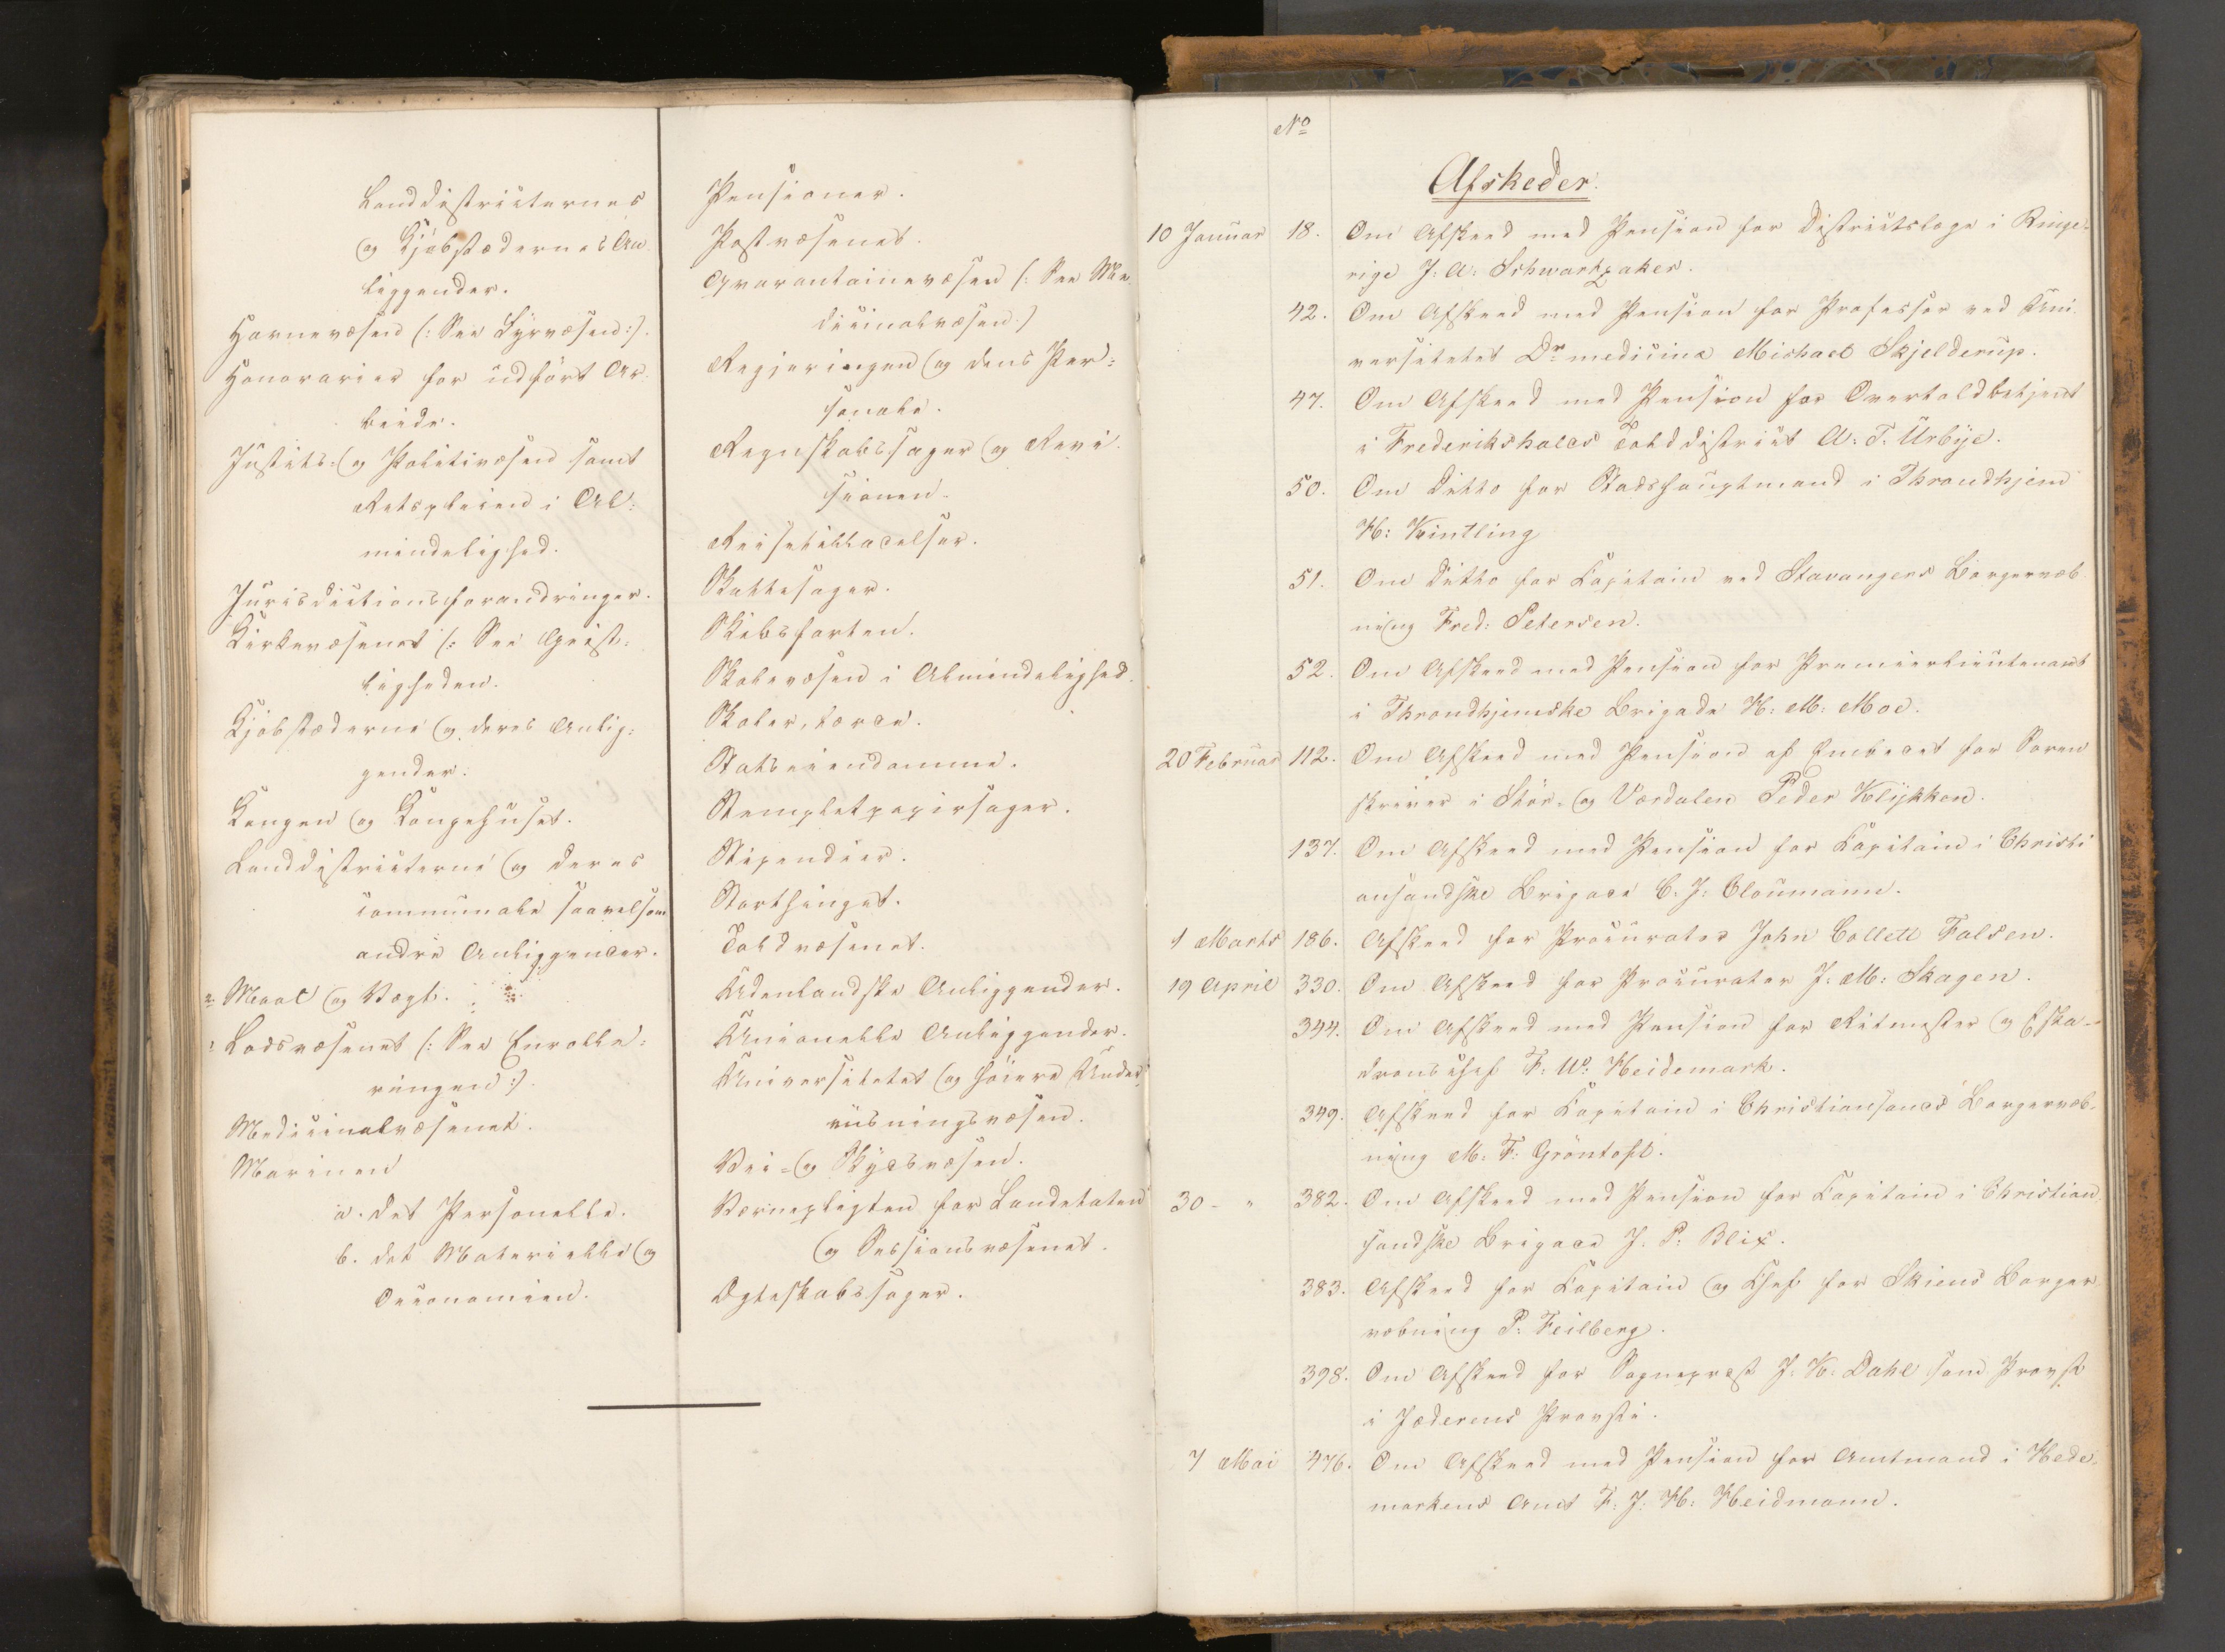 Landdistricternes
og Kjøbstædernes An-
liggender.
Havnevæsen (: See Fyrvæsen :).
Honorarier for udført Ar-
beide.
Justits- og Politivæsen samt
Retspleien i Al-
mindelighed.
Jurisdictionsforandringer.
Kirkevæsenet (: See Geist-
ligheden.
Kjøbstæderne og deres Anlig-
gender.
Kongen og Kongehuset.
Landdistricterne og deres
communale saavelsom
andre Anliggender.
Maal og Vægt.
Lodsvæsenet (: See Enrolle-
ringen :)
Medicinalvæsenet.
Marinen
a. det Personelle.
b. det Materielle og
Oeconomien.
Pensioner.
Postvæsenet.
Qvarantainevæsen (: See Me-
dicinalvæsen :)
Regjeringen og dens Per-
sonale.
Regnskabssager og Revi-
sionen.
Reisetilladelser.
Skattesager.
Skibsfarten.
Skolevæsen i Almindelighed.
Skoler, lærde.
Statseiendomme.
Stempletpapirsager.
Stipendier.
Storthinget.
Toldvæsenet.
Udenlandske Anliggender.
Unionelle Anliggender.
Universitetet og høiere Under-
viisningsvæsen.
Vei- og Skydsvæsen.
Værnepligten for Landetaten
og Sessionsvæsenet.
Ægteskabssager.
No
Afskeder.
10 Januar 18. Om Afskeed med Pension for Districtslæge i Ringe-
rige J: A: Schwartzaker.
42. Om Afskeed med Pension for Professor ved Uni-
versitetet Dr medicinæ Michael Skjelderup.
47. Om Afskeed med Pension for Overtoldbetjent
i Frederikshalds Tolddistrict A: T. Urbye.
50. Om Ditto for Stadshauptmand i Throndhjem
H: Kintling
51. Om Ditto for Capitain ved Stavangers Borgervæb-
ning Fred: Petersen.
52. Om Afskeed med Pension for Premierlieutenant
i Throndhjemske Brigade H: M: Moe.
20 Februar 112. Om Afskeed med Pension af Embedet for Soren-
skriver i Stör- og Værdalen Peder Klykken.
137. Om Afskeed med Pension for Capitain i Christi-
ansandske Brigade C. J: Cloumann.
1 Marts 186. Afskeed for Procurator John Collett Falsen.
19 April 330. Om Afskeed for Procurator J: M: Skagen.
344. Om Afskeed med Pension for Ritmester og Eska-
dronschef F: W: Heidemark.
349. Afskeed for Capitain i Christiansands Borgervæb-
ning M: F: Gröntoft.
30 - " 382. Om Afskeed med Pension for Capitain i Christian-
sandske Brigade J: P: Blix.
383. Afskeed for Capitain og Chef for Skiens Borger-
væbning P: Feilberg.
398. Om Afskeed for Sogneprest J: K: Dahl som Provst
i Jæderens Provsti.
7 Mai 476. Om Afskeed med Pension for Amtmand i Hede-
markens Amt F: J: H: Heidmann.